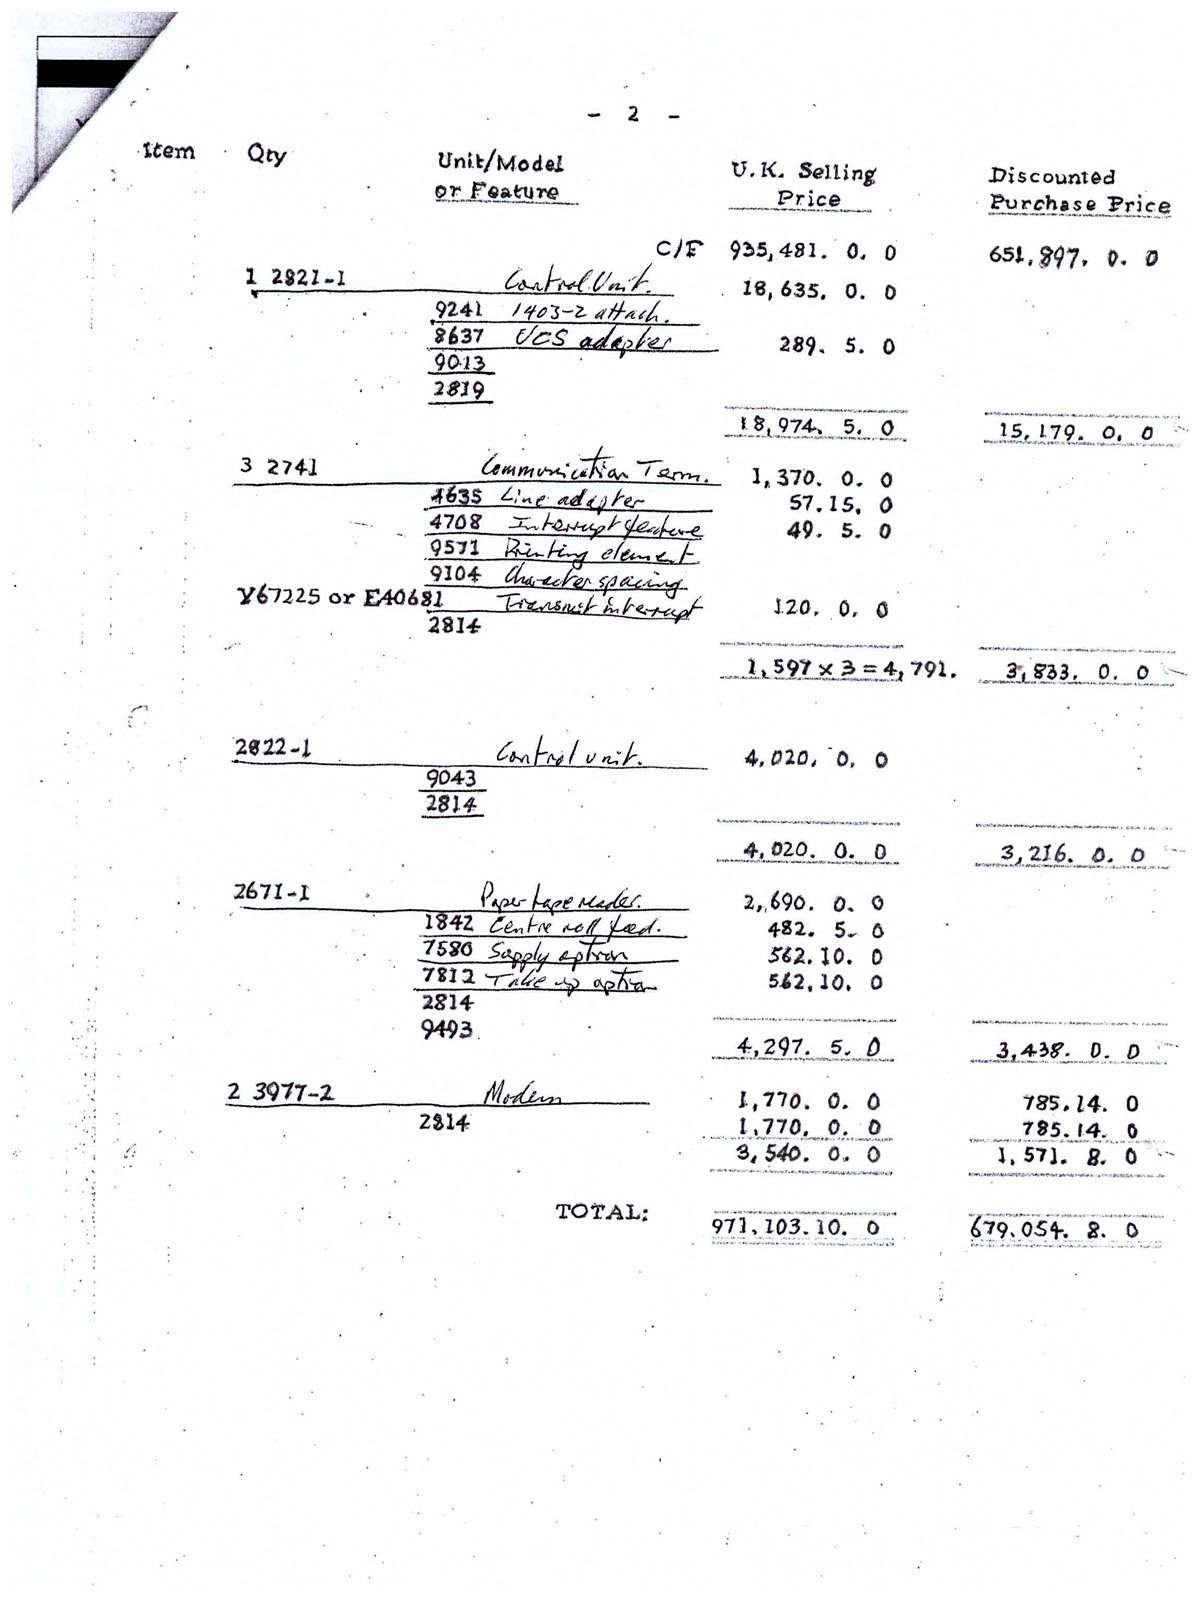 - 2 -
Item Qty Unit/Model U.K. Selling Discounted
or Feature Price Purchase Price
C/F 935,481. 0. 0 651,897. 0. 0
1 2821-1 Control Unit. 18,635. 0. 0
9241 1403-2 attach.
8637 UCS adapter 289. 5. 0
9013
2819
18,974. 5. 0 15,179. 0. 0
3 2741 Communication Term. 1,370. 0. 0
4635 Line adapter 57.15. 0
4708 Interrupt feature 49. 5. 0
9571 Printing element
9104 Character spacing
Y67225 or E40681 Transmit interrupt 120. 0. 0
2814
1,597 x 3 = 4,791. 3,833. 0. 0
2822-1 Control unit. 4,020. 0. 0
9043
2814
4,020. 0. 0 3,216. 0. 0
2671-1 Paper tape reader. 2,690. 0. 0
1842 Centre roll feed. 482. 5. 0
7580 Supply option 562.10. 0
7812 Take up option 562.10. 0
2814
9493
4,297. 5. 0 3,438. 0. 0
2 3977-2 Modem 1,770. 0. 0 785.14. 0
2814 1,770. 0. 0 785.14. 0
3,540. 0. 0 1,571. 8. 0
TOTAL: 971,103.10. 0 679,054. 8. 0